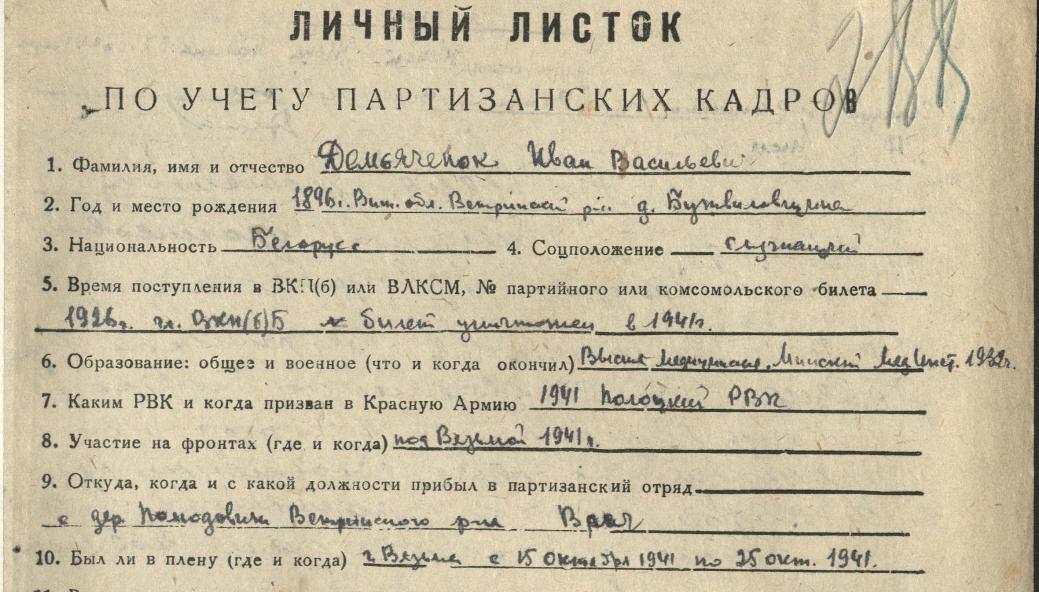 ЛИЧНЫЙ ЛИСТОК
ПО УЧЕТУ ПАРТИЗАНСКИХ КАДРОВ
1. Фамилия, имя и отчество Демьяченок Иван Васильеви
2. Год и место рождения 1896г. Вит. обл. Ветринский р-н д.
3. Национальность Белорусс 4. Соцположение служащий
5. Время поступления в ВКП(б) или ВЛКСМ, № партийного или комсомольского билета
1926г. чл. ВКП(б)Б № билет уничтожен в 1941г.
6. Образование: общее и военное (что и когда окончил) Высшее медицинское, Минский Мед Инст. 1932г.
7. Каким РВК и когда призван в Красную Армию 1941 Полоцкий РВК
8. Участие на фронтах (где и когда) под Вязьмой 1941г.
9. Откуда, когда и с какой должности прибыл в партизанский отряд
с дер. Ветринского р-на Врач
10. Был ли в плену (где и когда) г. Вязьма с 15 октября 1941 по 25 окт. 1941.